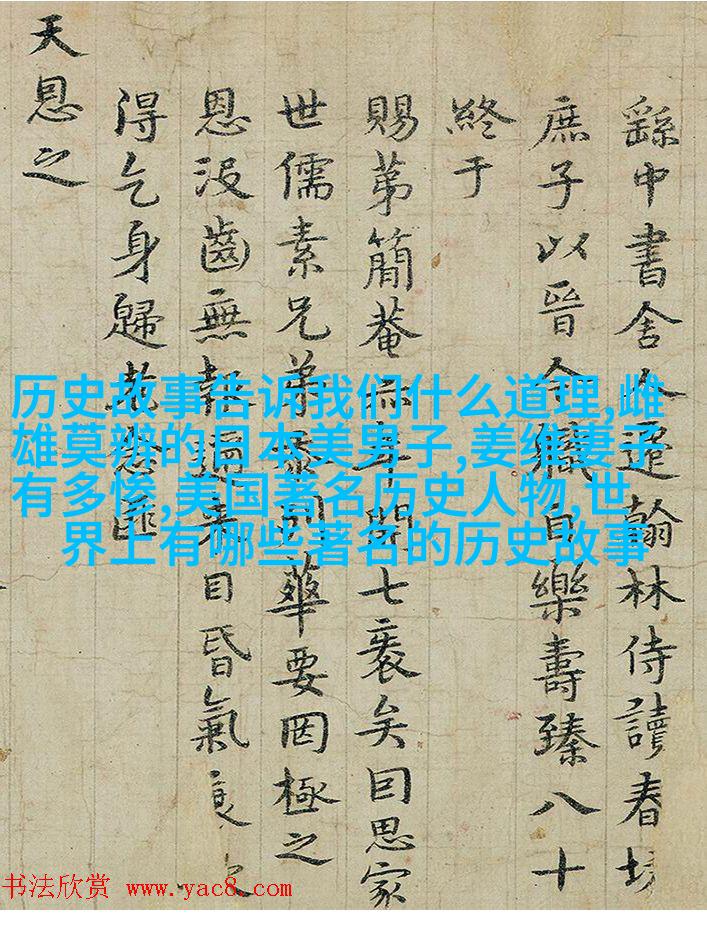 繇中書舍人遷翰林侍讀春坊
庶子以晉今職自樂壽臻八十
終于
賜苐簡菴亦年開七袠矣囙思家
世儒素兄弟忝列華要罔極之
恩沒齒無報邇來目昏氣衰
得乞身歸老念匪
天恩之
历史故事告诉我们什么道理,雌
雄莫辨的日本美男子,姜维妻子
有多惨,美国著名历史人物,世
界上有哪些著名的历史故事
书法欣赏 www.yac8.com